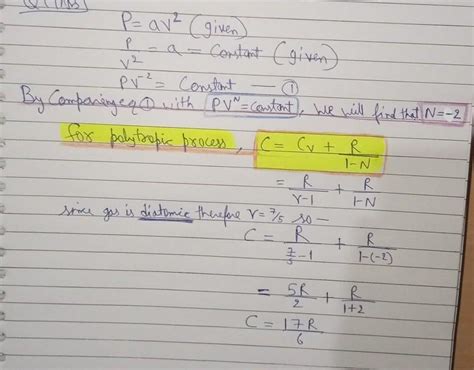 P = av² (given)
P/v² = a = Constant (given)
PV⁻² = Constant — ①
By Comparing eq ① with PVᴺ = constant, we will find that N = -2
for polytropic process, C = Cv + R/(1-N)
= R/(γ-1) + R/(1-N)
since gas is diatomic therefore γ = 7/5 so —
C = R/(7/5 - 1) + R/(1-(-2))
= 5R/2 + R/(1+2)
C = 17R/6